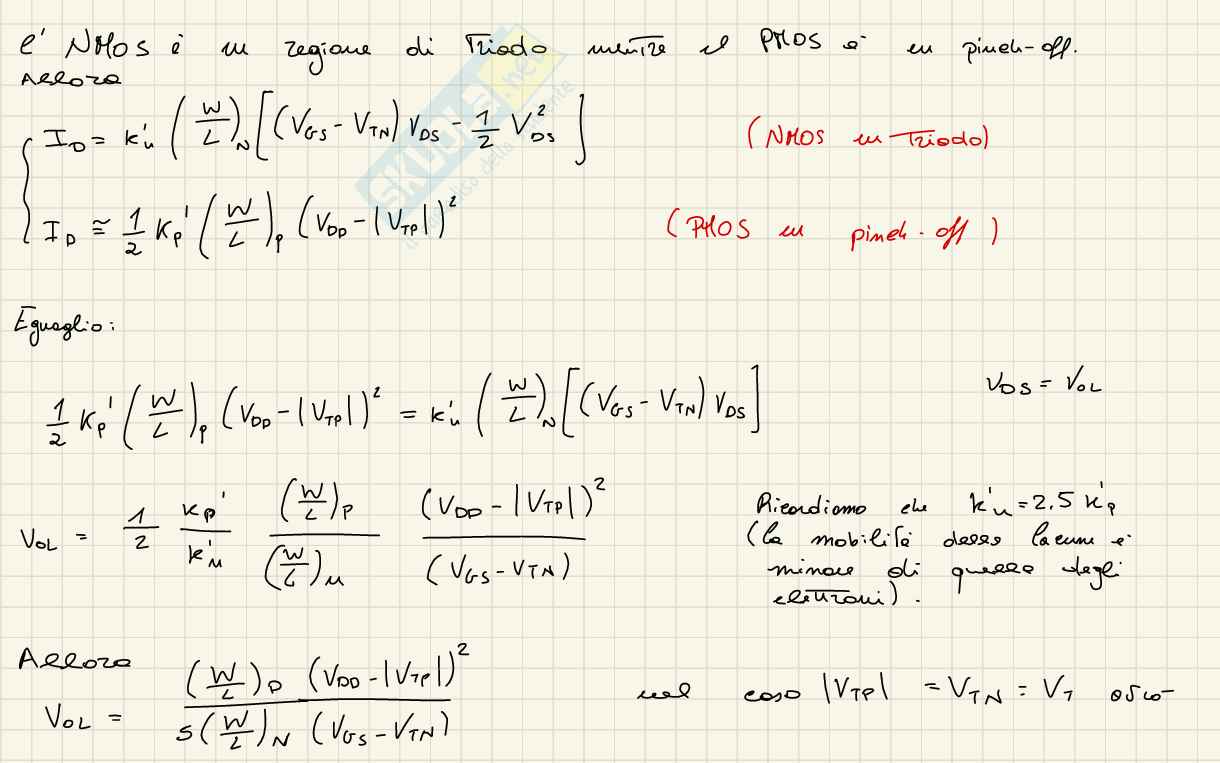 L' NMOS è in regione di Triodo mentre il PMOS è in pinch-off.
Allora
I_D = k'_n (W/L)_N [(V_GS - V_TN) V_DS - 1/2 V_DS^2] (NMOS in Triodo)
I_D ≅ 1/2 K_p' (W/L)_p (V_DD - |V_TP|)^2 (PMOS in pinch-off)
Eguaglio:
1/2 K_p' (W/L)_p (V_DD - |V_TP|)^2 = k'_n (W/L)_N [(V_GS - V_TN) V_DS] V_DS = V_OL
V_OL = 1/2 K_p'/k'_n (W/L)_P/(W/L)_n (V_DD - |V_TP|)^2/(V_GS - V_TN)
Ricordiamo che k'_n = 2.5 k'_p
(la mobilità delle lacune è
minore di quella degli
elettroni).
Allora
V_OL = (W/L)_p (V_DD - |V_TP|)^2 / 5 (W/L)_N (V_GS - V_TN) nel caso |V_TP| = V_TN = V_T
SKUOLA.net